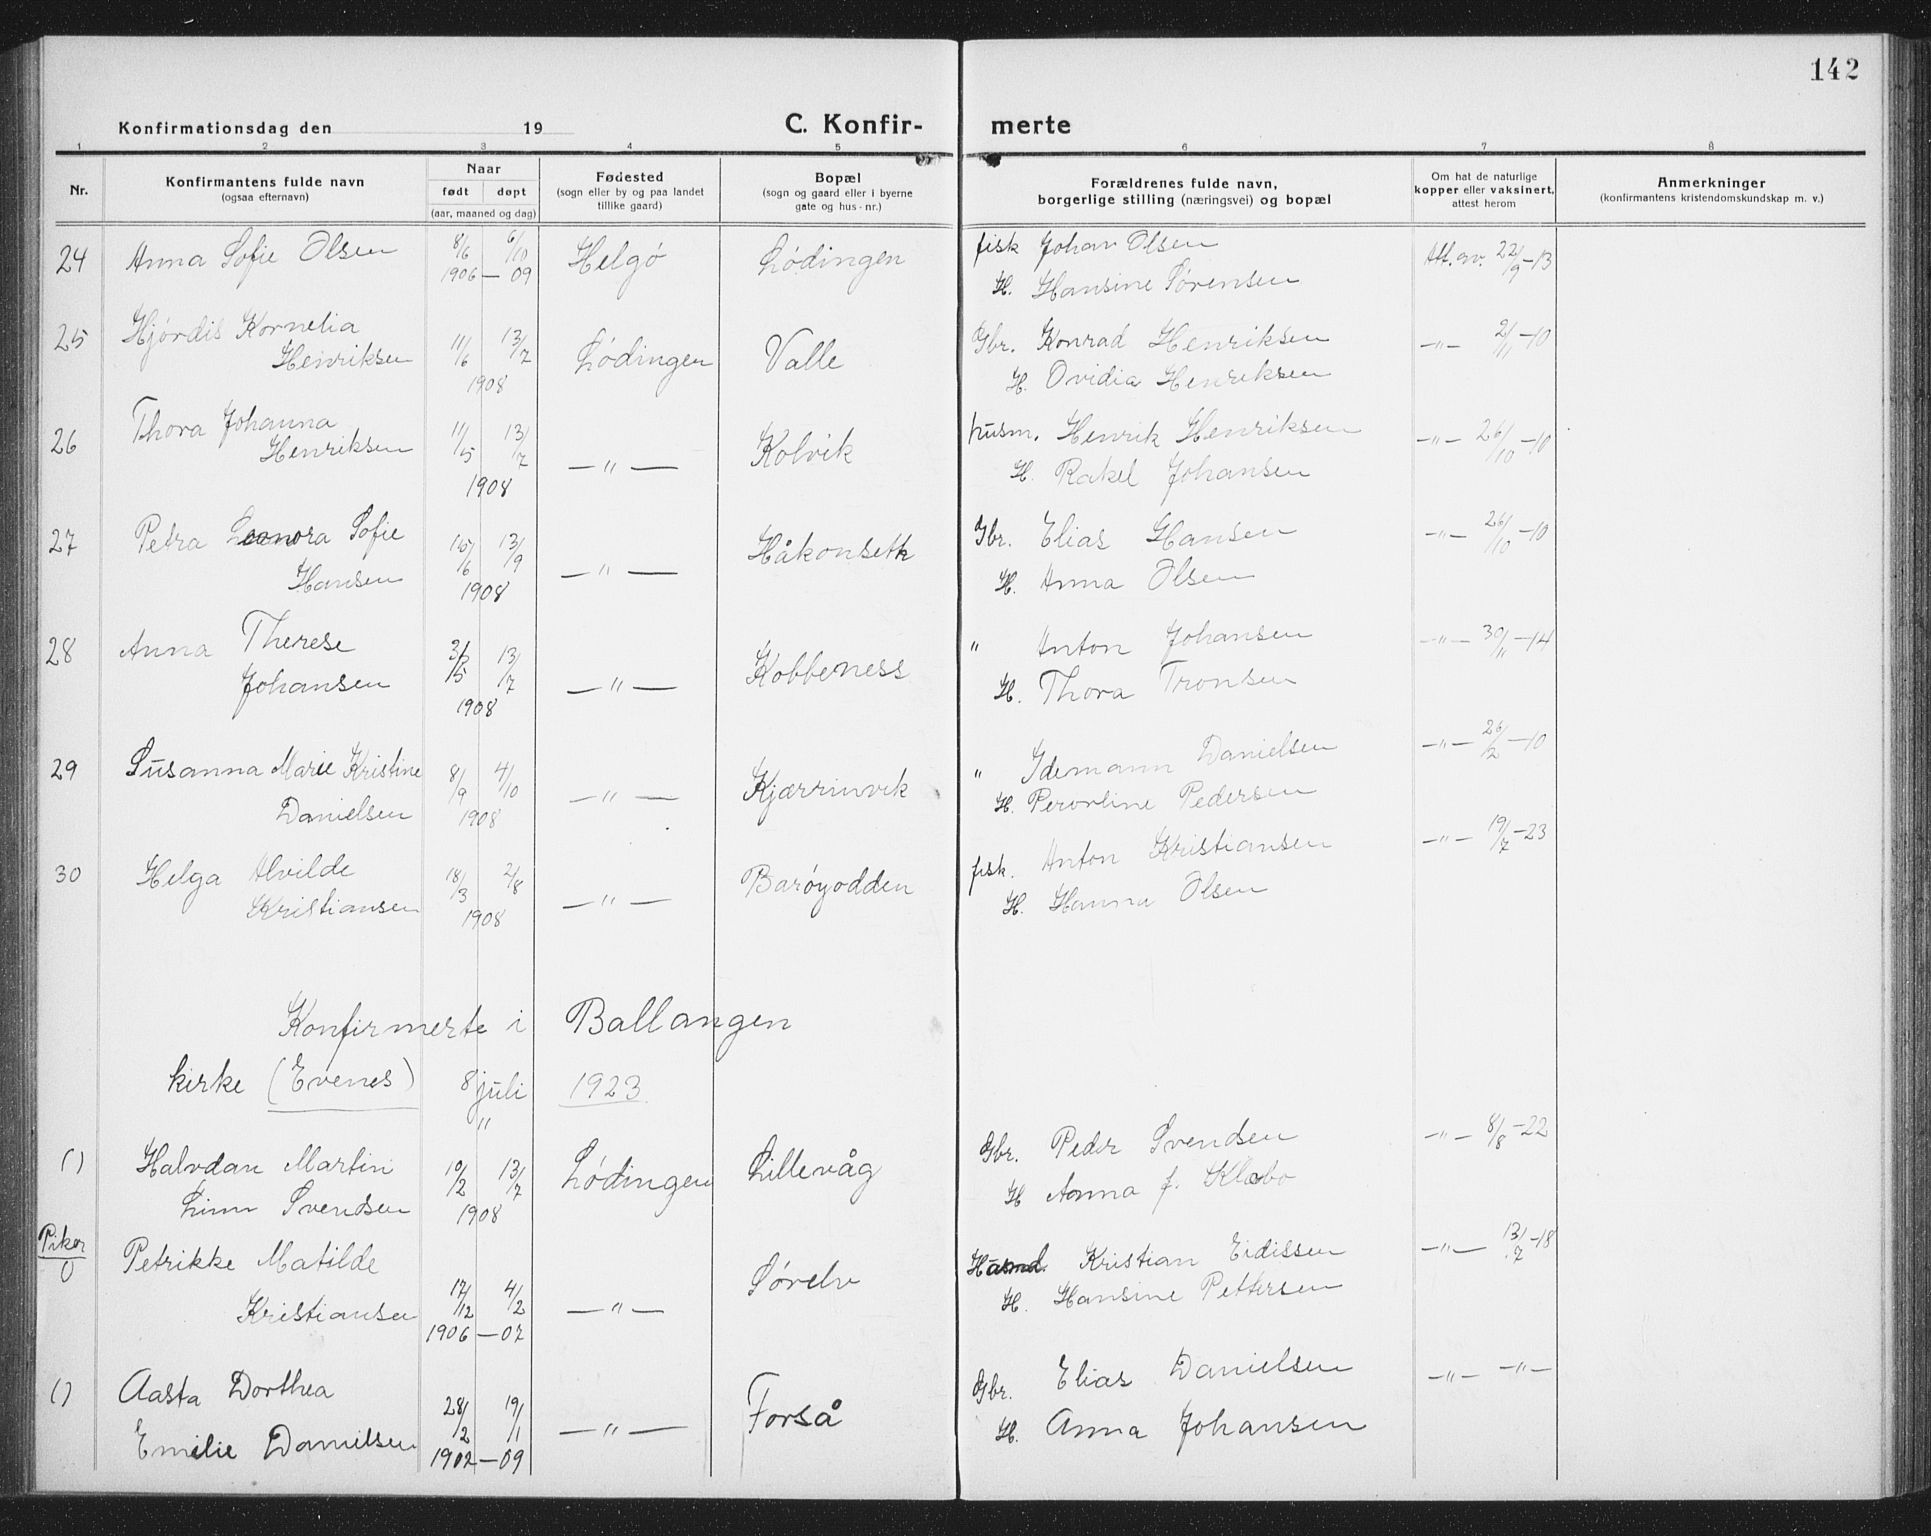 142
Konfirmationsdag den 19
C. Konfir- merte
1 2 3 4 5 6 7 8
Nr.
Konfirmantens fulde navn
(ogsaa efternavn)
Naar
født døpt
(aar, maaned og dag)
Fødested
(sogn eller by og paa landet
tillike gaard)
Bopæl
(sogn og gaard eller i byerne
gate og hus-nr.)
Forældrenes fulde navn,
borgerlige stilling (næringsvei) og bopæl
Om hat de naturlige
kopper eller vaksinert,
attest herom
Anmerkninger
(konfirmantens kristendomskundskap m. v.)
24 Anna Sofie Olsen 8/6 6/10 Helgö Lödingen fisk Johan Olsen Att. av. 22/9-13
1906 — 09 H. Hansine Sørensen
25 Hjördis Kornelia Gbr. Konrad Henriksen —"— 2/11-10
Henriksen 11/6 13/7 Lödingen Valle
1908 H. Ovidia Henriksen
26 Thora Johanna husm. Henrik Henriksen —"— 26/10-10
Henriksen 11/5 13/7 —"— Kolvik
1908 H. Rakel Johansen
27 Petra Leonora Sofie 16/6 13/9 Håkonseth Gbr. Elias Hansen —"— 26/10-10
Hansen —"—
1908 H. Anna Olsen
28 Anna Therese " Anton Johansen —"— 30/11-14
Johansen 31/5 13/7 —"— Kobbeness H. Thora Tronsen
1908
29 Susanna Marie Kristine 8/9 4/10 Kjærrinvik " Idemann Danielsen —"— 26/2-10
Danielsen 1908 —"— H. Perorline Pedersen
30 Helga Alvilde 18/3 2/8 Barøyodden fisk. Anton Kristiansen —"— 19/7-23
Kristiansen 1908 —"— H. Hanna Olsen
Konfirmerte i Ballangen
kirke (Evenes) 8 juli 1923
"
() Halvdan Martin 10/2 13/7 Lödingen Lillevåg Gbr. Peder Svendsen —"— 8/8-22
Svendsen 1908 H Anna f. Klæbo
Piker
() Petrikke Matilde Sörelv Kristian Eidissen —"— 13/7-18
Kristiansen 17/12 4/2 —"— H. Hansine Pettersen
1906 — 07
() Aasta Dorthea Gbr. Elias Danielsen —"— —"—
28/2 19/1 —"— Forså
Emilie Danielsen 1902 — 09 H. Anna Johansen